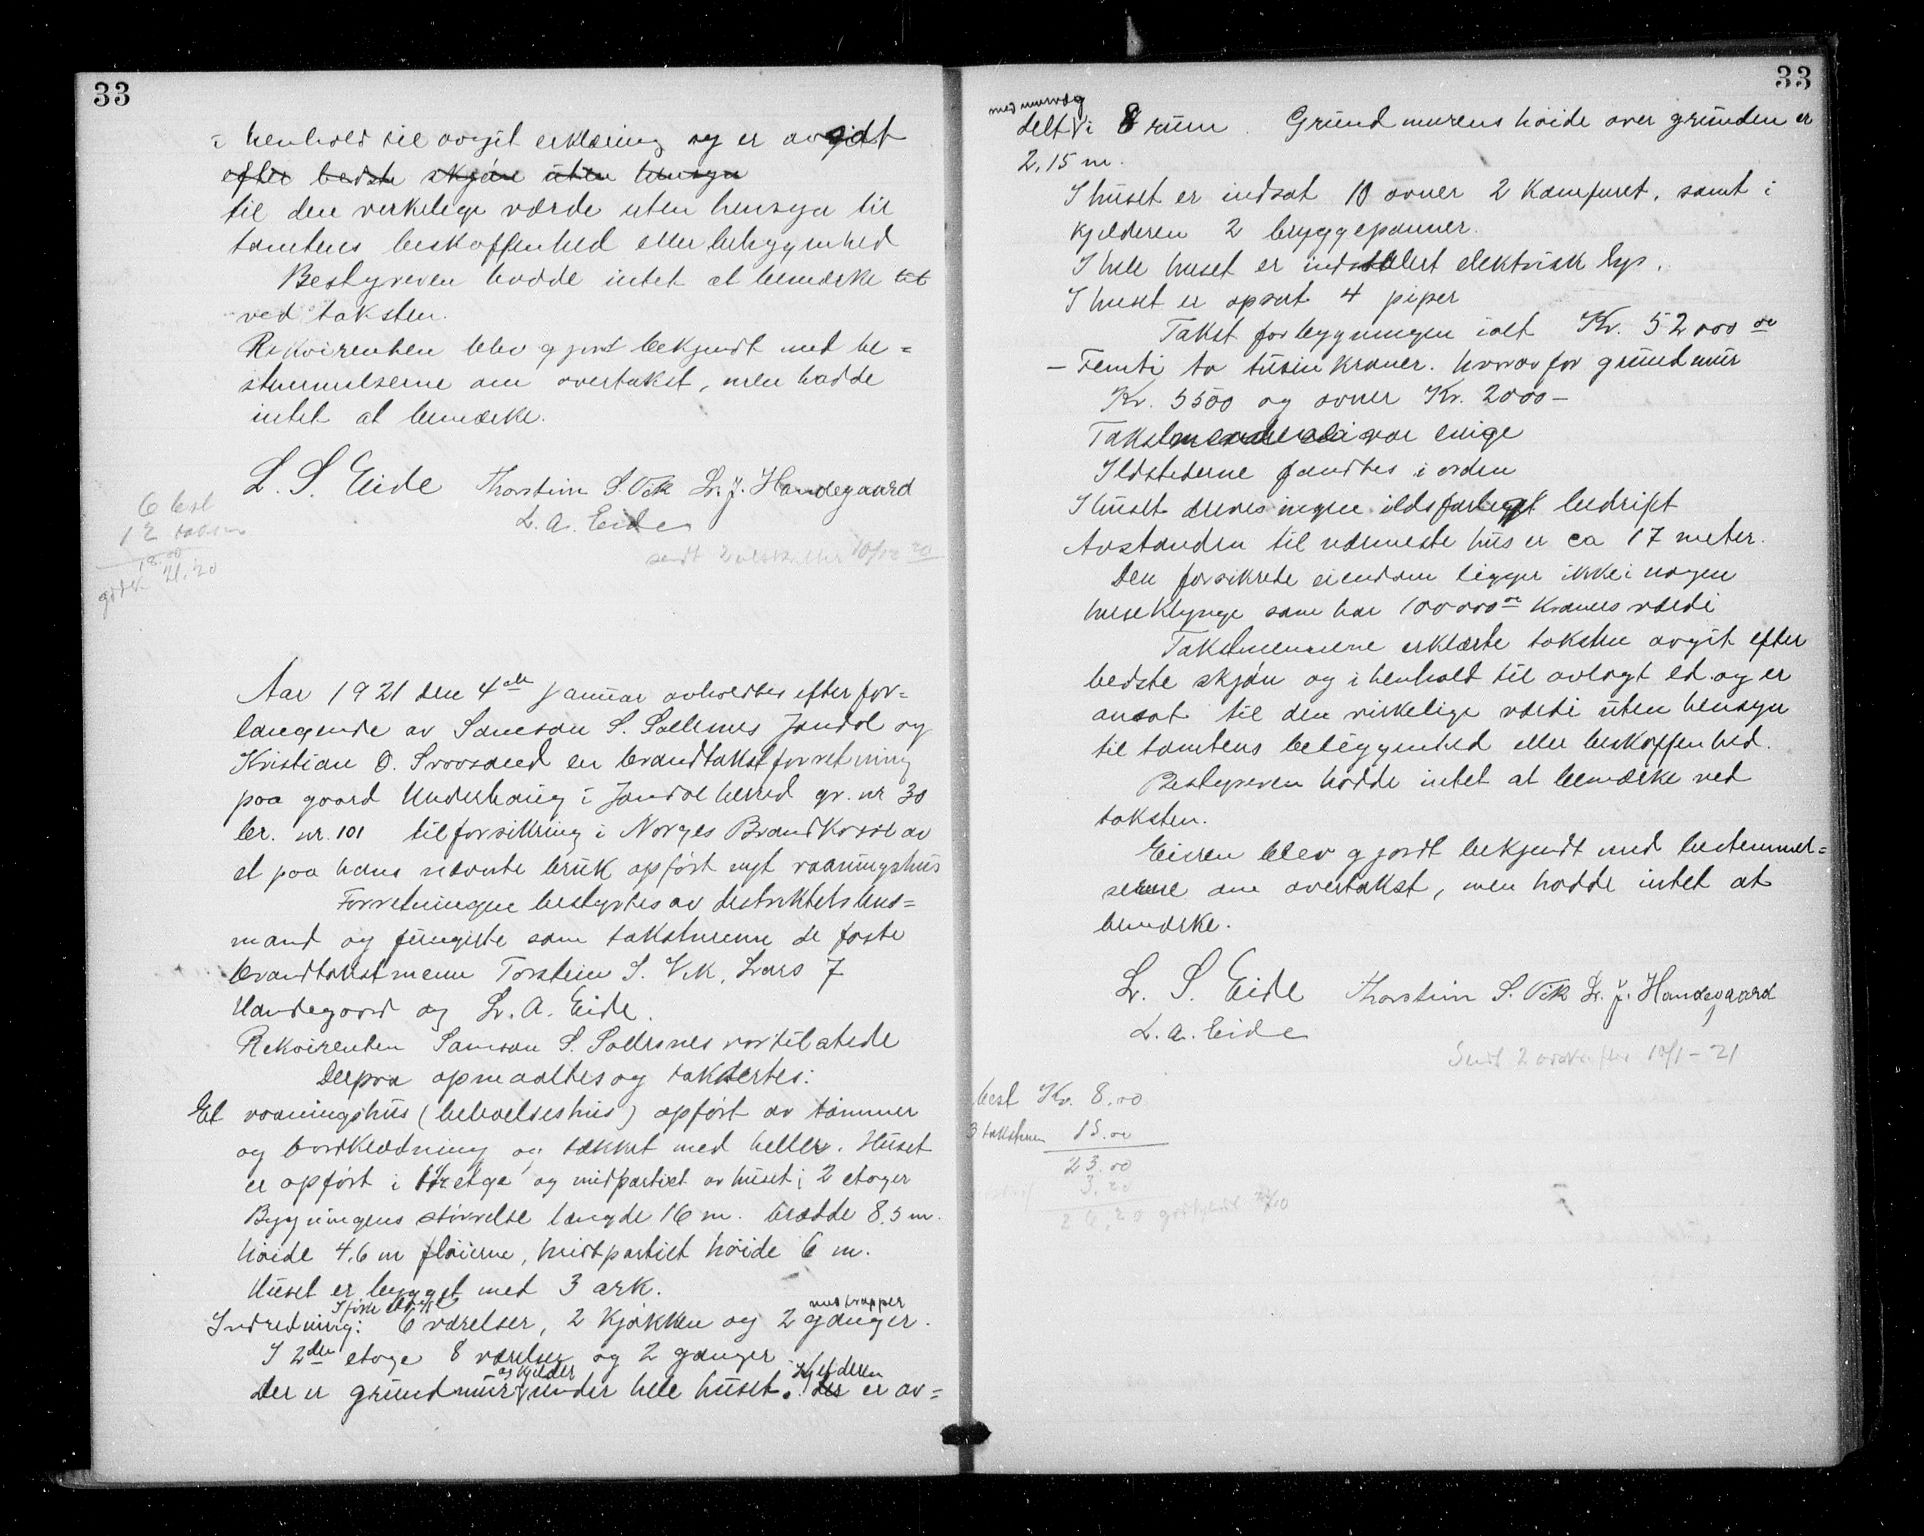 33
i henhold til avgit erklæring og er avgidt
efter bedste skjøn uten hensyn
til den verkelige værde uten hensyn til
tomtens beskaffenhed eller beliggenhed
Bestyreren hadde intet at bemærke tit
ved taksten.
Rekvirenten blev gjort bekjendt med be=
stemmelserne om overtakst, men hadde
intet at bemærke.
L. S. Eide Thorstein S. Vik Lr. J. Handegaard
L. A. Eide
6 best
12 takstm
18.00
godtk 21.20
sendt 2 utskrifter 10/12 20
Aar 1921 den 4de januar avholdtes efter for=
langende av Samson S. Sollesnes Jondal og
Kristian O. Svovsand en brandtakstforretning
paa gaard Underhaug i Jondal herred gr. nr 30
br. nr. 101 til forsikring i Norges Brandkasse av
et paa hans nævnte bruk opført nyt vaaningshus
Forretningen bestyrtes av distriktets lens=
mand og fungerte som takstmenn de faste
brandtakstmenn Torstein S. Vik, Lars J
Handegard og Lr. A. Eide.
Rekvirenten Samson S. Sollesnes var tilstede
Derpaa opmaaltes og takstertes:
Et vaaningshus (beboelseshus) opført av tømmer
og bordklædning og tækket med heller. Huset
er opført i 1 etage og midtpartiet av huset i 2 etager
Bygningens størrelse længde 16 m. bredde 8.5 m.
høide 4,6 m fløierne, midtpartiet høide 6 m.
Huset er bygget med 3 ark.
I første etage
med trapper
Indredning: 6 værelser, 2 kjøkken og 2 ganger.
I 2den etage 8 værelser og 2 ganger
og kjelder
Kjelderen
Der er grundmur under hele huset. der er av=
33
med murvæg
delt i 8 rum. Grundmurens høide over grunden er
2,15 m.
I huset er indsat 10 ovner 2 Komfuret, samt i
kjelderen 2 bryggepanner.
I hele huset er indstalert elektrisk lys.
I huset er opsat 4 piper
Takst for bygningen ialt Kr. 52000 00
– Femti to tusin kroner. hvorav for grundmur
Kr. 5500 og ovner Kr. 2000 –
Takstmændene var enige
Ildstederne fandtes i orden
I huset drives ingen ildsfarligt bedrift
Avstanden til nærmeste hus er ca 17 meter.
Den forsikrede eiendom ligger ikke i nogen
huseklynge som har 100000 00 kroners værdi
Takstmennene erklærte taksten avgit efter
bedste skjøn og i henhold til avlagt ed og er
ansat til den virkelige værdi uten hensyn
til tomtens beliggenhed eller beskaffenhed.
Bestyreren hadde intet at bemærke ved
taksten.
Eieren blev gjordt bekjendt med bestemmel=
serne om overtakst, men hadde intet at
bemærke.
Lr. S. Eide Thorstein S. Vik Lr. J. Handegaard
L. A. Eide
Sendt 2 avskrifter 10/1 - 21
best Kr. 8.00
3 takstmen 15.00
23.00
3.20
26,20 godtgjort